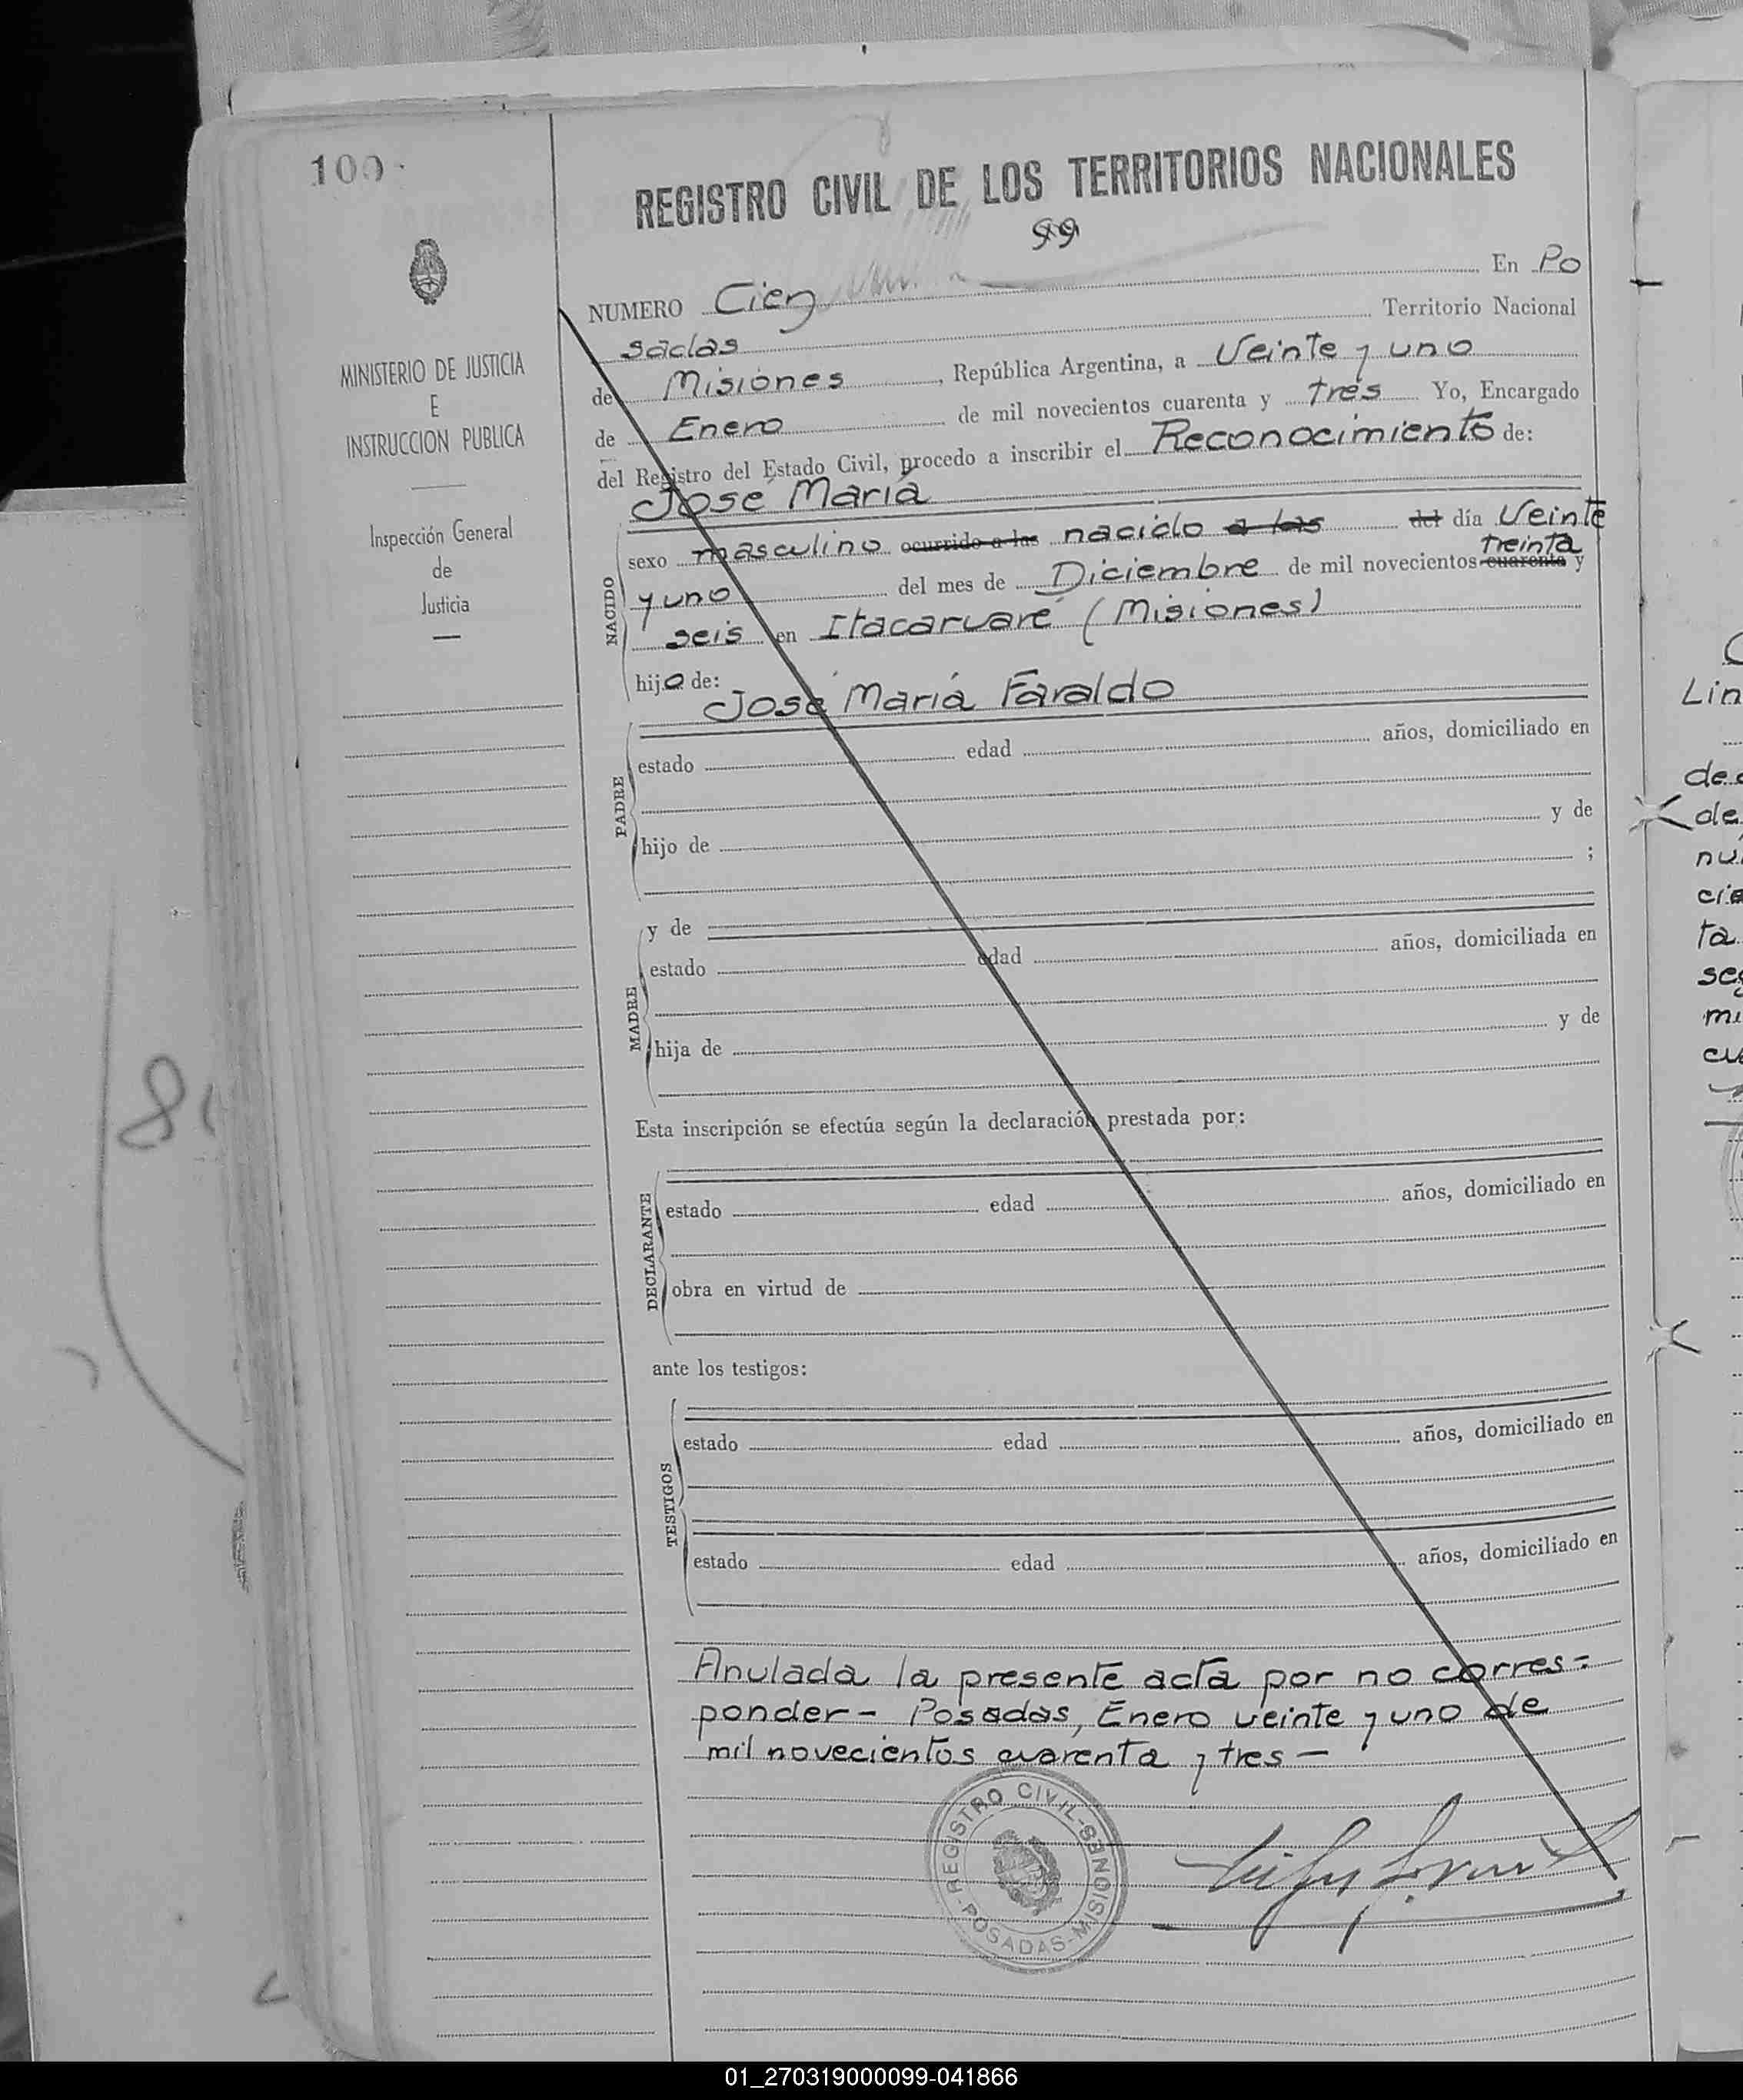 100
REGISTRO CIVIL DE LOS TERRITORIOS NACIONALES
99
NUMERO Cien En Po
sadas Territorio Nacional
de Misiones, República Argentina, a Veinte y uno
de Enero de mil novecientos cuarenta y tres Yo, Encargado
del Registro del Estado Civil, procedo a inscribir el Reconocimiento de:
MINISTERIO DE JUSTICIA
E
INSTRUCCION PUBLICA
Inspección General
de
Justicia
José María
NACIDO
sexo masculino ocurrido a las nacido a las del día Veinte
treinta
y uno del mes de Diciembre de mil novecientos cuarenta y
seis en Itacaruaré (Misiones)
hijo de:
José María Faraldo
PADRE
estado edad años, domiciliado en
hijo de y de
;
y de
MADRE
estado edad años, domiciliada en
hija de y de
Esta inscripción se efectúa según la declaración prestada por:
DECLARANTE
estado edad años, domiciliado en
obra en virtud de
ante los testigos:
TESTIGOS
estado edad años, domiciliado en
estado edad años, domiciliado en
Anulada la presente acta por no corres=
ponder - Posadas, Enero veinte y uno de
mil novecientos cuarenta y tres —
REGISTRO CIVIL - POSADAS - MISIONES
8
Lin
de
de
nú
cie
ta
se
mi
cu
01_270319000099-041866